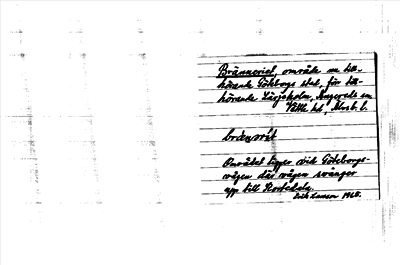 Brännoriet, område nu till-
hörande Göteborgs stad, förr till-
hörande Lärjeholm, Angereds sn
Vättle hd, Älvsb. l.
Området ligger vid Göteborgs-
vägen där vägen svänger
upp till
Erik Larsson 1968.